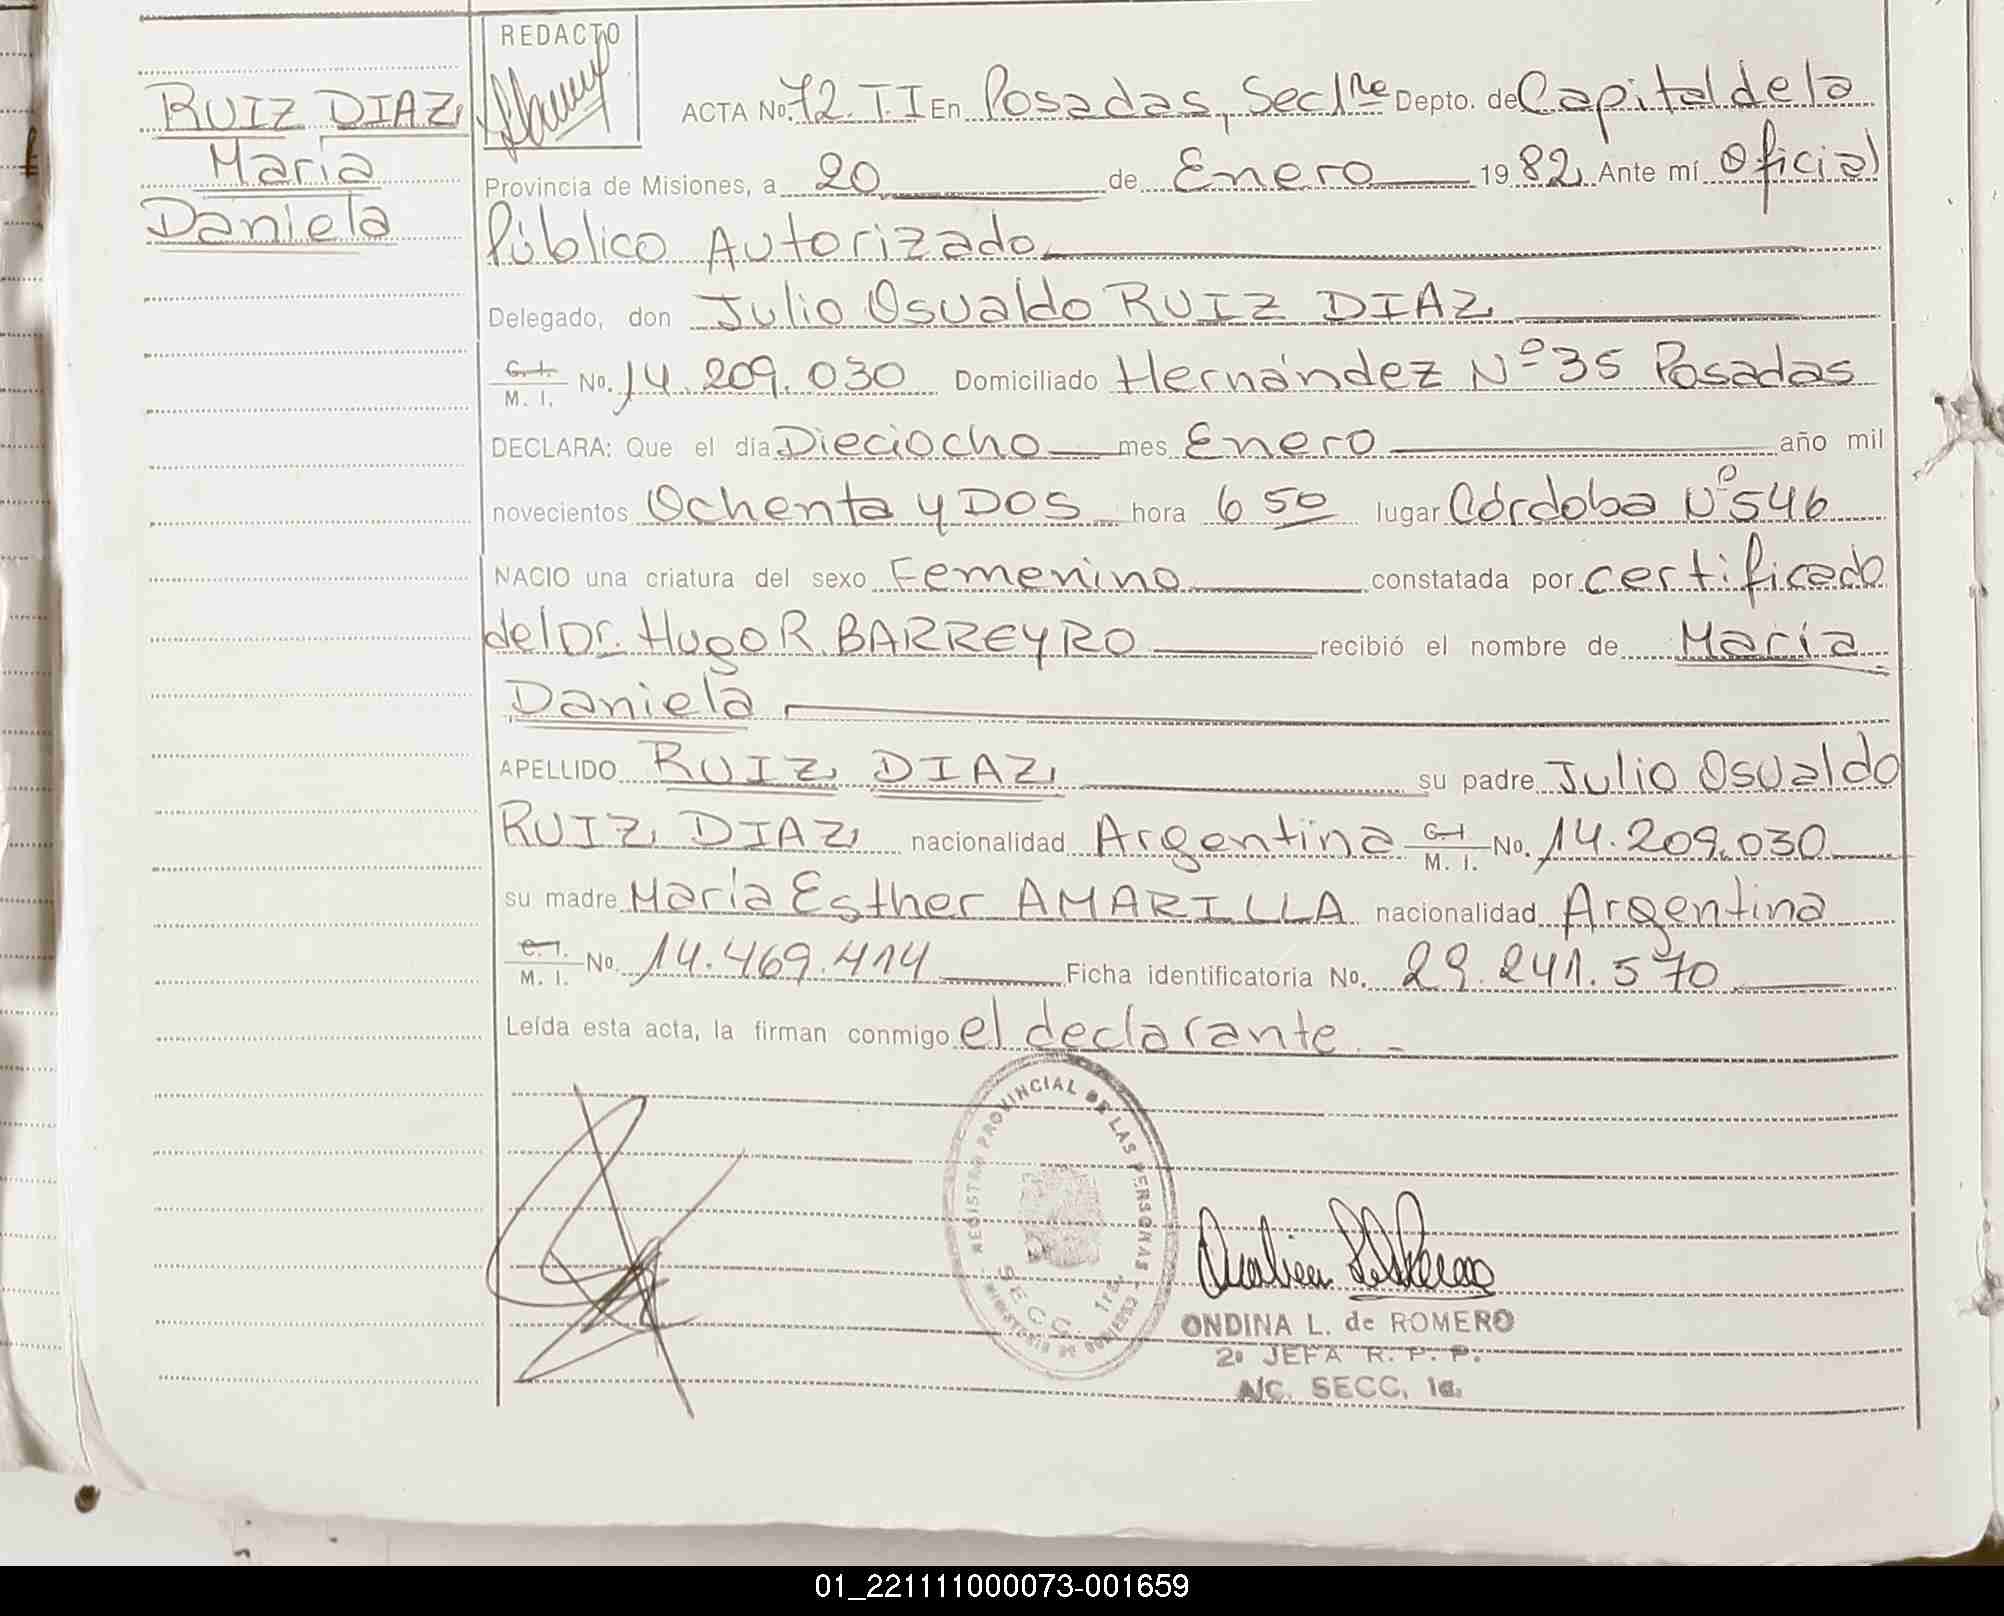 REDACTO
RUIZ DIAZ
Maria
Daniela
ACTA No. 72. T.I En Posadas, Sec1ra Depto. de Capital de la
Provincia de Misiones, a 20 de Enero 1982 Ante mí Oficial
Público Autorizado
Delegado, don Julio Osvaldo RUIZ DIAZ
C. I. M. I. No. 14.209.030 Domiciliado Hernández Nº 35 Posadas
DECLARA: Que el día Dieciocho mes Enero año mil
novecientos Ochenta y DOS hora 6 50 lugar Córdoba Nº 546
NACIO una criatura del sexo Femenino constatada por certificado
del Dr. Hugo R. BARREYRO recibió el nombre de María
Daniela
APELLIDO RUIZ DIAZ su padre Julio Osvaldo
RUIZ DIAZ nacionalidad Argentina C. I. M. I. No. 14.209.030
su madre María Esther AMARILLA nacionalidad Argentina
C. I. M. I. No. 14.469.414 Ficha identificatoria No. 29.241.570
Leída esta acta, la firman conmigo el declarante.-
REGISTRO PROVINCIAL DE LAS PERSONAS
MINISTERIO DE GOBIERNO
SECC. 1ra.
ONDINA L. de ROMERO
2º JEFA R. P. P.
A/C. SECC. 1a.
01_221111000073-001659